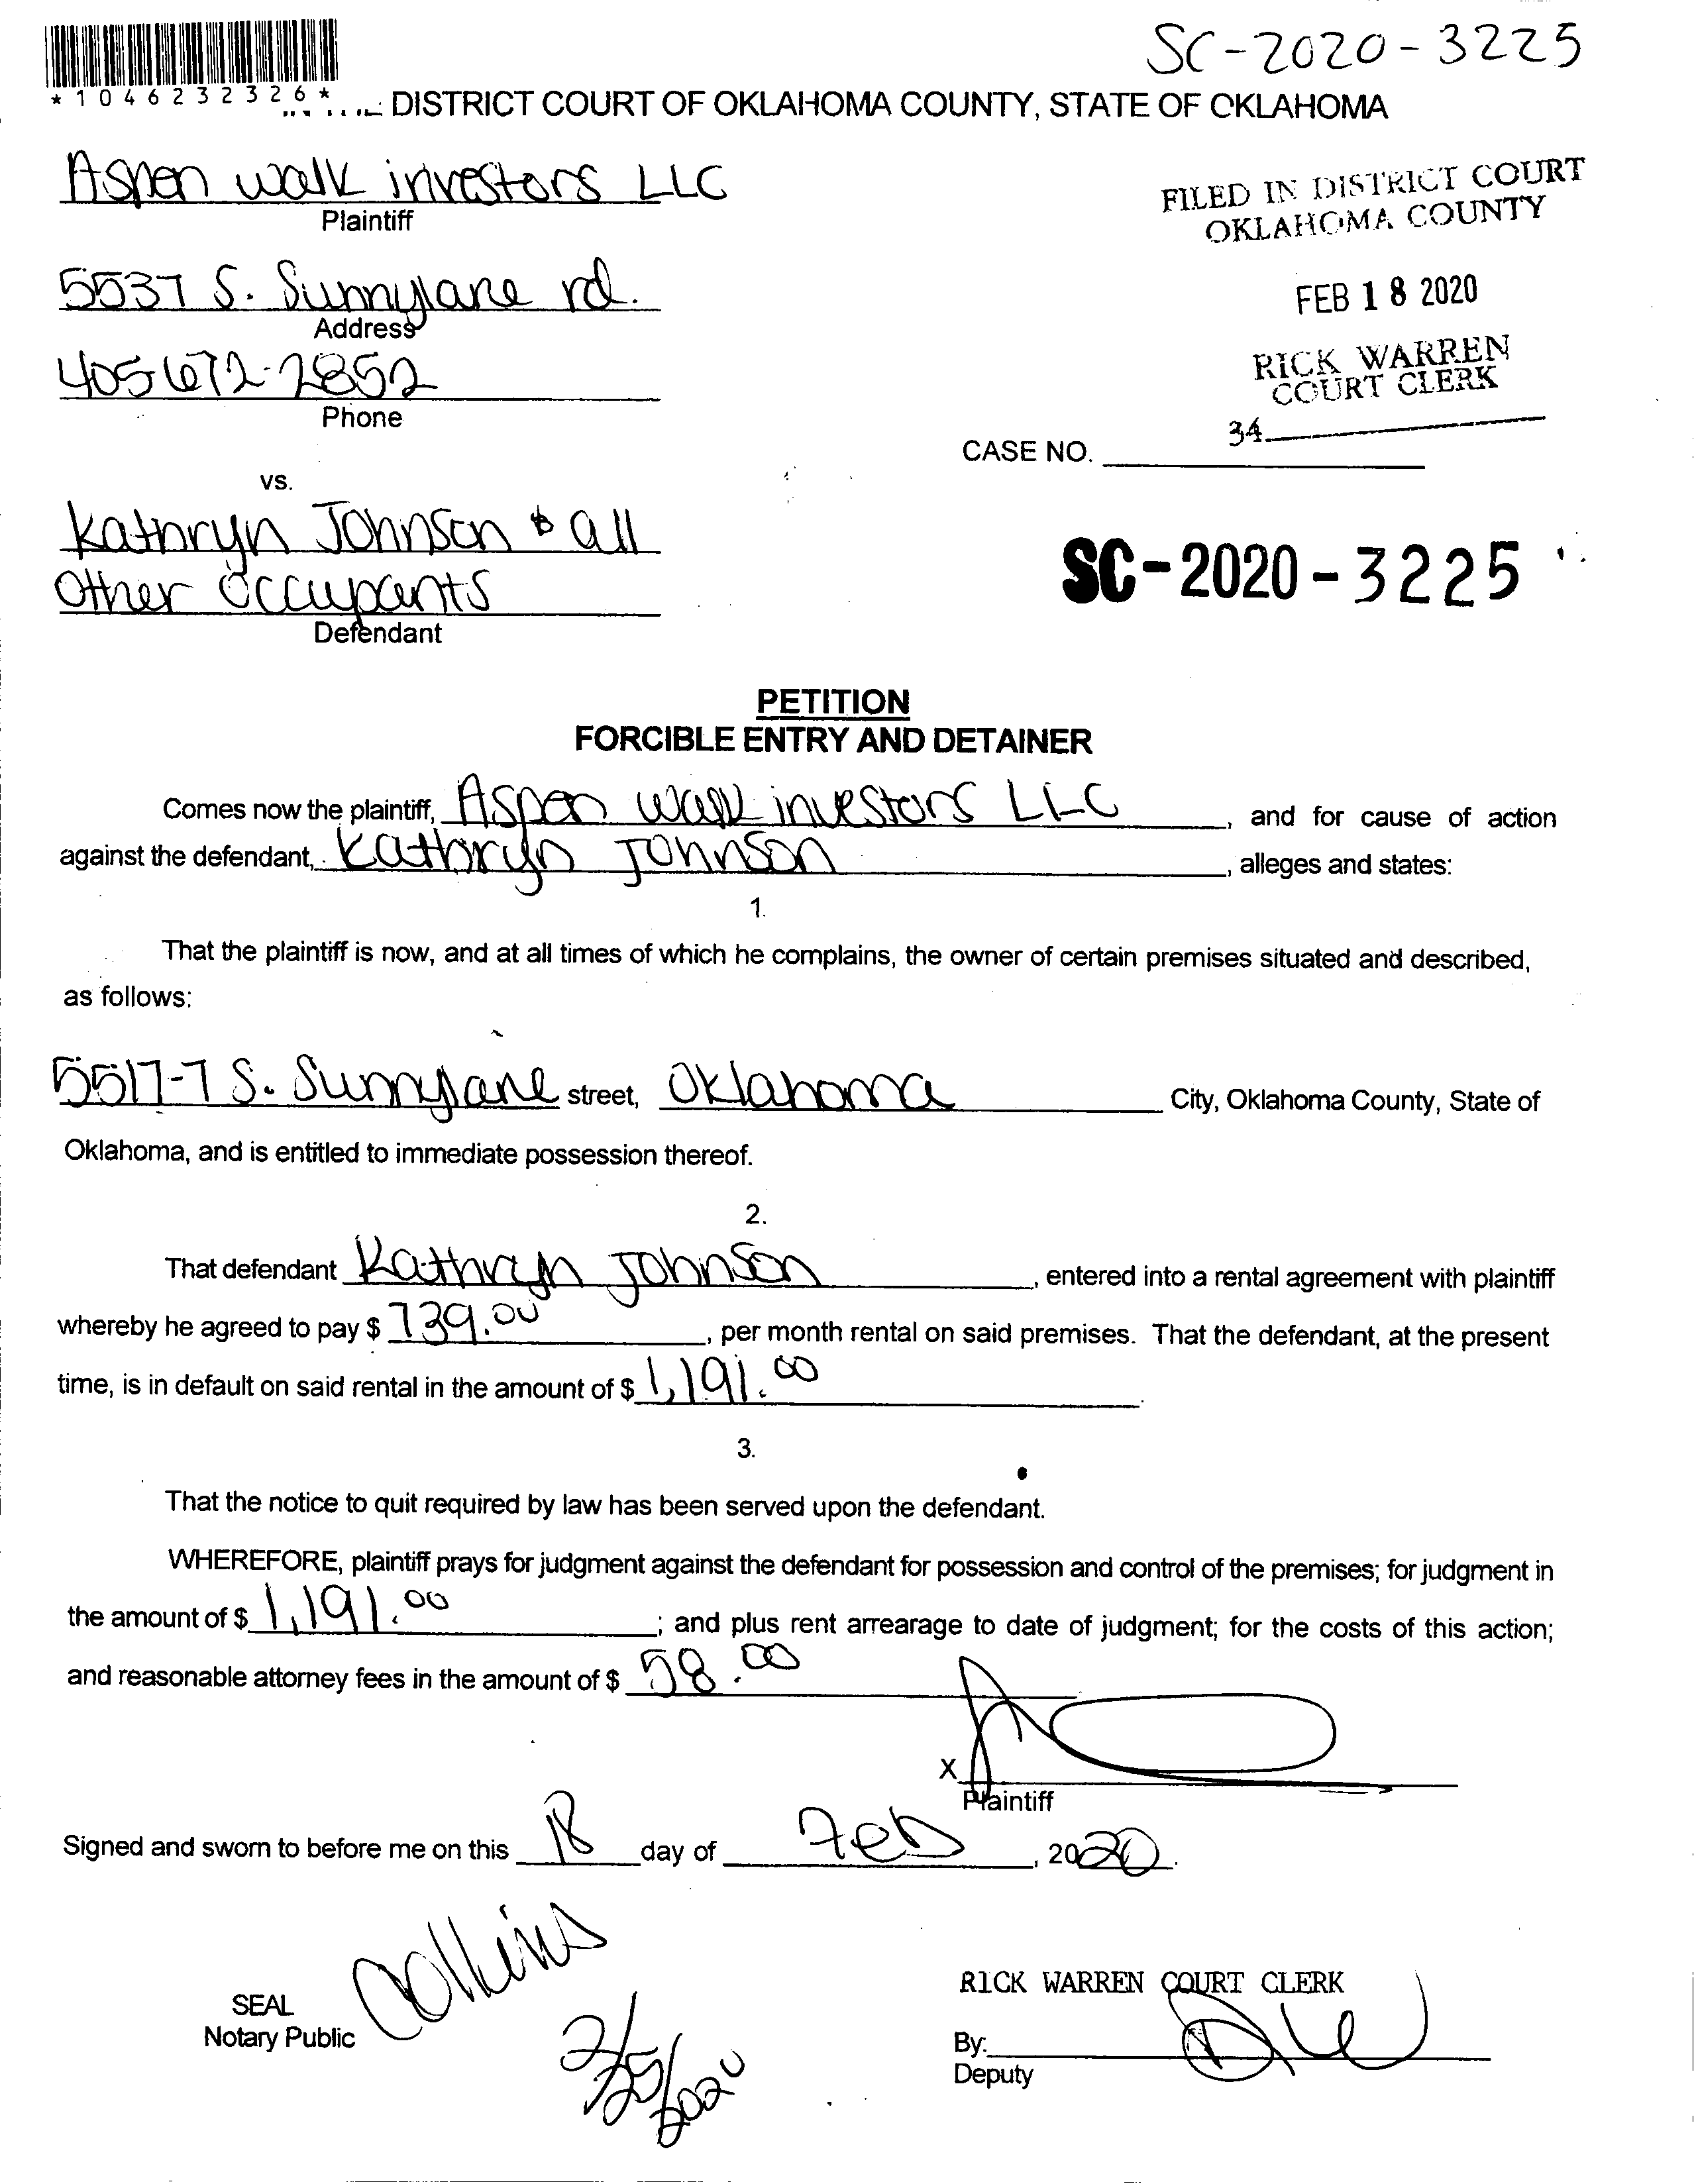 SC-2020-3225
*1046232326*
DISTRICT COURT OF OKLAHOMA COUNTY, STATE OF OKLAHOMA
Aspen walk investors LLC
Plaintiff
FILED IN DISTRICT COURT
OKLAHOMA COUNTY
5537 S. Sunnylane rd.
Address
FEB 18 2020
405 672-2852
Phone
RICK WARREN
COURT CLERK
34
CASE NO.
vs.
Kathryn Johnson & all
Other Occupants
Defendant
SC-2020-3225
PETITION
FORCIBLE ENTRY AND DETAINER
Comes now the plaintiff, Aspen walk investors LLC, and for cause of action
against the defendant, Kathryn Johnson, alleges and states:
1.
That the plaintiff is now, and at all times of which he complains, the owner of certain premises situated and described,
as follows:
5517-7 S. Sunnylane street, Oklahoma City, Oklahoma County, State of
Oklahoma, and is entitled to immediate possession thereof.
2.
That defendant Kathryn Johnson, entered into a rental agreement with plaintiff
whereby he agreed to pay $ 739.00, per month rental on said premises. That the defendant, at the present
time, is in default on said rental in the amount of $ 1,191.00.
3.
That the notice to quit required by law has been served upon the defendant.
WHEREFORE, plaintiff prays for judgment against the defendant for possession and control of the premises; for judgment in
the amount of $ 1,191.00; and plus rent arrearage to date of judgment; for the costs of this action;
and reasonable attorney fees in the amount of $ 58.00
X
Plaintiff
Signed and sworn to before me on this 18 day of Feb, 2020.
Collins
2/25/2020
SEAL
Notary Public
RICK WARREN COURT CLERK
By:
Deputy